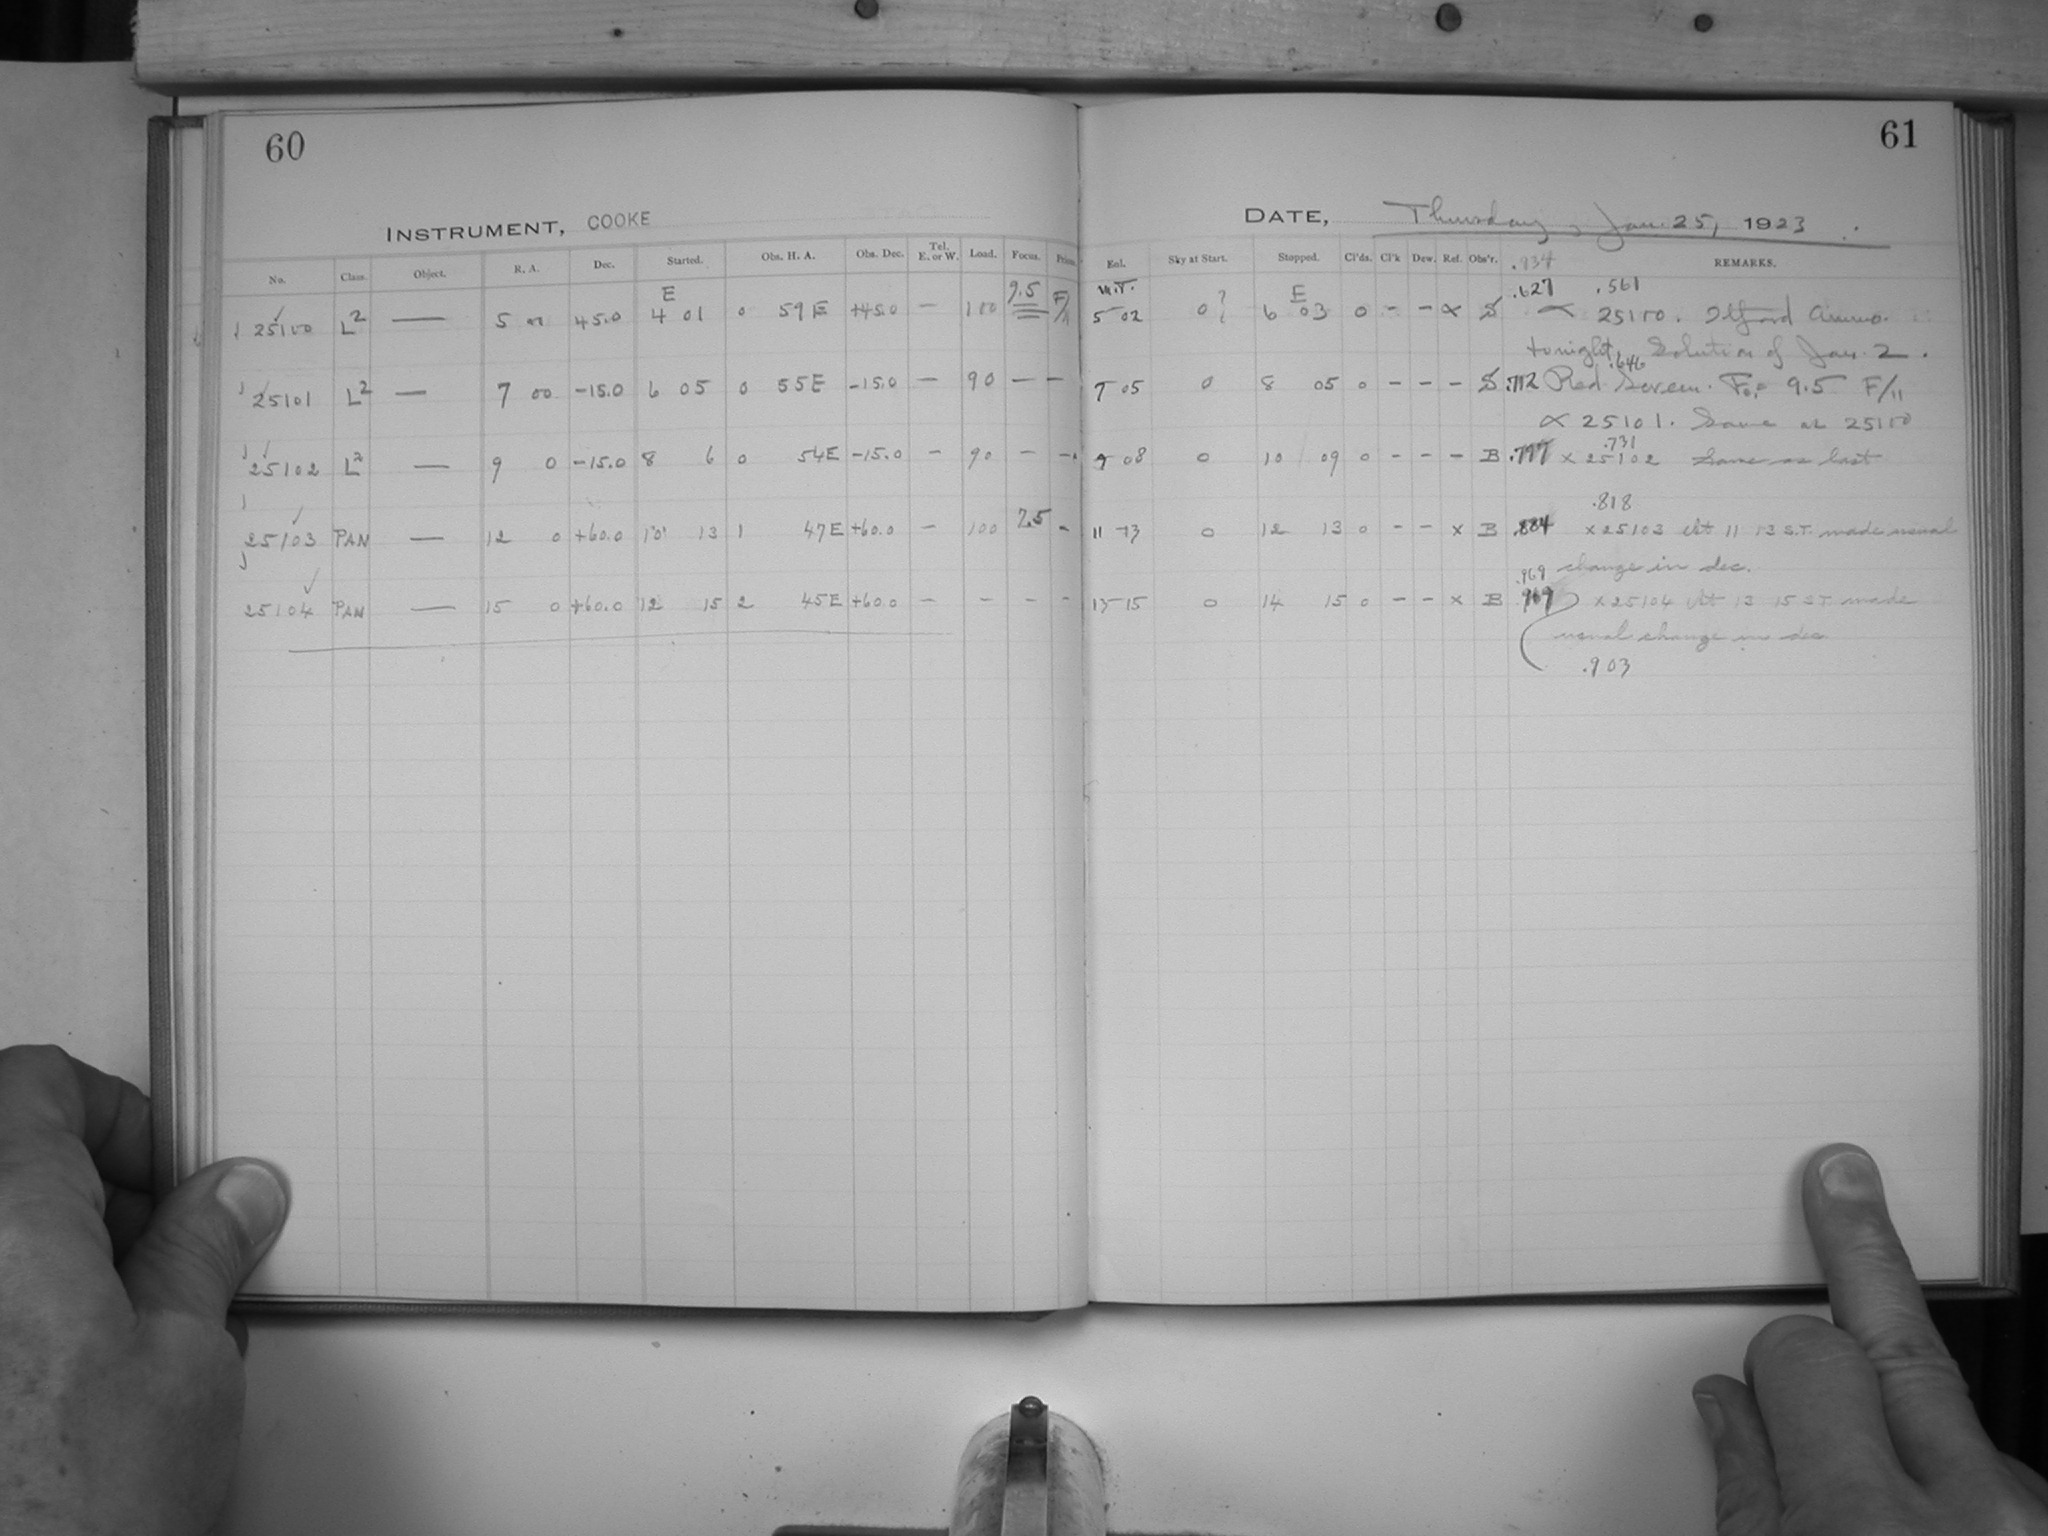 60
INSTRUMENT, COOKE
No. Class. Object. R. A. Dec. Started. Obs. H. A. Obs. Dec. Tel. E. or W. Load. Focus.
E 9.5
25100 L2 — 5 00 45.0 4 01 0 59 E +45.0 — 100 F/11
25101 L2 — 7 00 -15.0 6 05 0 55E -15.0 — 90 — —
25102 L2 — 9 0 -15.0 8 6 0 54E -15.0 — 90 — —
25103 PAN — 12 0 +60.0 10 13 1 47E +60.0 — 100 7.5 -
25104 PAN — 15 0 +60.0 12 15 2 45E +60.0 — - - -
61
DATE, Thursday, Jan. 25, 1923
Eol. Sky at Start. Stopped. Cl'ds. Cl'k Dew. Ref. Obs'r. .934 REMARKS.
E .627 .561
5 02 0? 6 03 0 - - ∝ S ∝ 25100. Ilford Ammo.
tonight. Solution of Jan. 2.
.646
7 05 0 8 05 0 - - - S .712 Red Screen. Foc 9.5 F/11
∝ 25101. Same as 25100
.731
9 08 0 10 09 0 - - - B .797 x 25102 Same as last
.818
11 13 0 12 13 0 - - x B .884 x 25103 At 11 13 S.T. made usual
change in dec.
.969
13 15 0 14 15 0 - - x B .969 x 25104 At 13 15 S.T. made
usual change in dec
.903